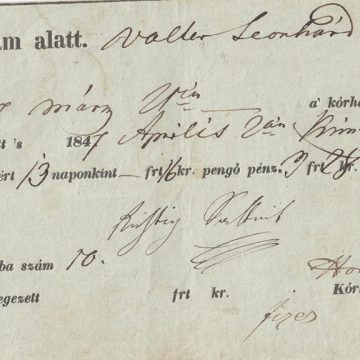 m alatt. Walter Leonhard
márz a' kórh
tt 's 1847 Április 2án
ért 13 naponkint — frt 16 kr. pengő pénz. 3 frt 28 kr.
ba szám 10. Ho
egezett frt kr. Kór